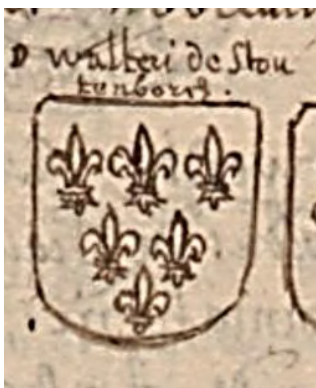 D walteri de Stou
tenborch.